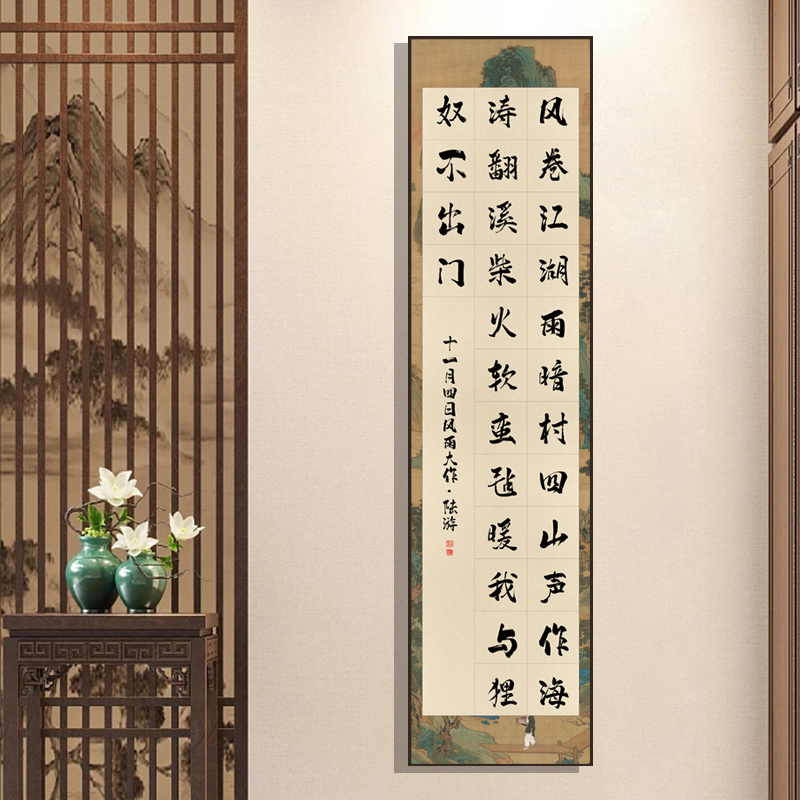 风卷江湖雨暗村四山声作海
涛翻溪柴火软蛮毡暖我与狸
奴不出门
十一月四日风雨大作·陆游